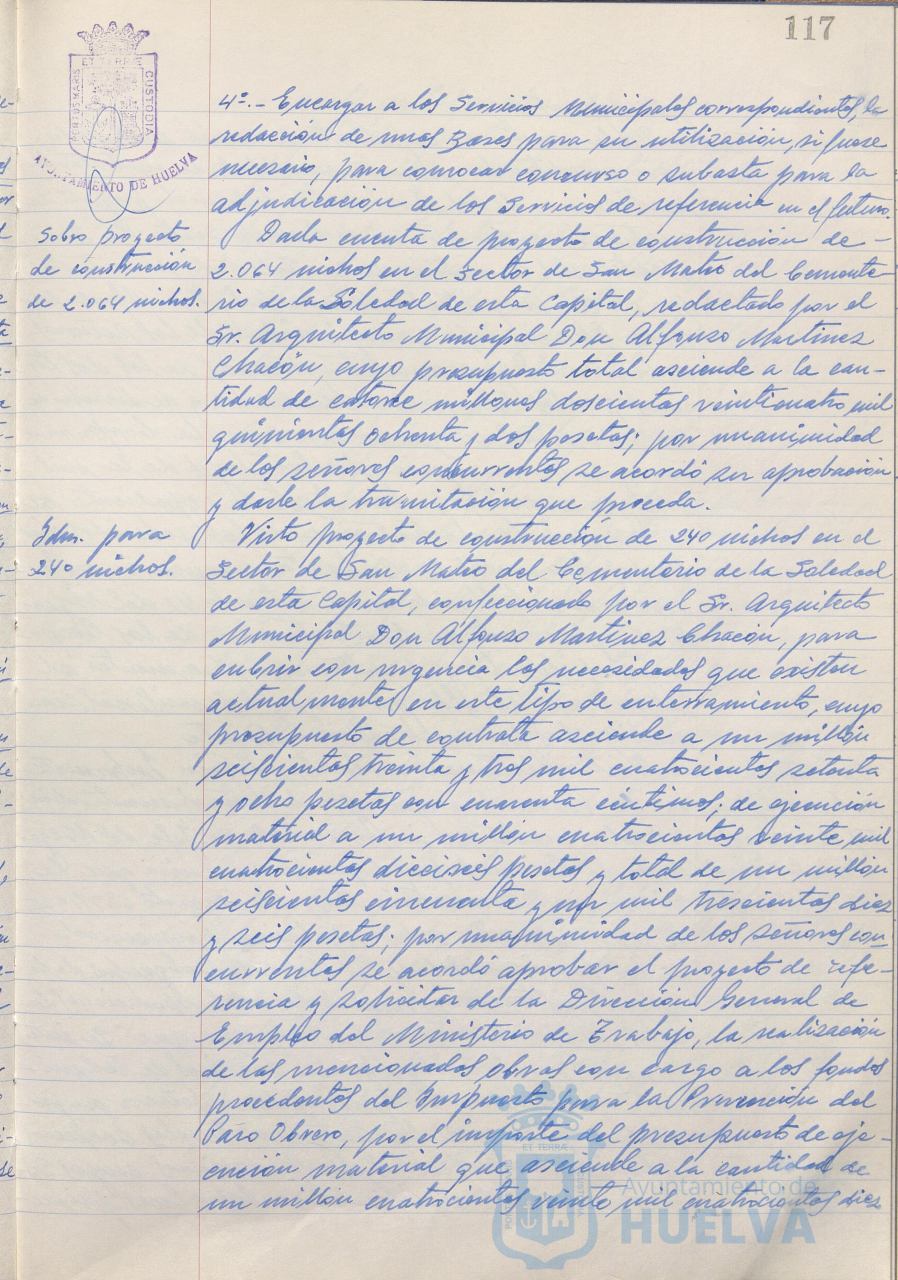 117
PORTUS MARIS ET TERRÆ CUSTODIA
AYUNTAMIENTO DE HUELVA
4º.- Encargar a los Servicios Municipales correspondientes, la
redacción de unas Bases para su utilización, si fuese
necesario, para convocar concurso o subasta para la
adjudicación de los Servicios de referencia en el futuro.
Sobre proyecto
de construcción
de 2.064 nichos.
Dada cuenta de proyecto de construcción de -
2.064 nichos en el Sector de San Mateo del Cemente-
rio de la Soledad de esta Capital, redactado por el
Sr. Arquitecto Municipal Don Alfonso Martinez
Chacón, cuyo presupuesto total asciende a la can-
tidad de catorce millones doscientas veinticuatro mil
quinientas ochenta y dos pesetas; por unanimidad
de los señores concurrentes se acordó su aprobación
y darle la tramitación que proceda.
Idm. para
240 nichos.
Visto proyecto de construcción de 240 nichos en el
Sector de San Mateo del Cementerio de la Soledad
de esta Capital, confeccionado por el Sr. Arquitecto
Municipal Don Alfonso Martinez Chacón, para
cubrir con urgencia las necesidades que existen
actualmente en este tipo de enterramiento, cuyo
presupuesto de contrata asciende a un millón
seiscientas treinta y tres mil cuatrocientas setenta
y ocho pesetas con cuarenta centimos; de ejecución
material a un millón cuatrocientas veinte mil
cuatrocientas dieciseis pesetas y total de un millón
seiscientas cincuenta y un mil trescientas diez
y seis pesetas; por unanimidad de los señores con-
currentes se acordó aprobar el proyecto de refe-
rencia y solicitar de la Dirección General de
Empleo del Ministerio de Trabajo, la realización
de las mencionadas obras con cargo a los fondos
procedentes del Impuesto para la Prevención del
Paro Obrero, por el importe del presupuesto de eje-
cución material que asciende a la cantidad de
un millón cuatrocientas veinte mil cuatrocientas diez
ET TERRÆ
Ayuntamiento de
HUELVA